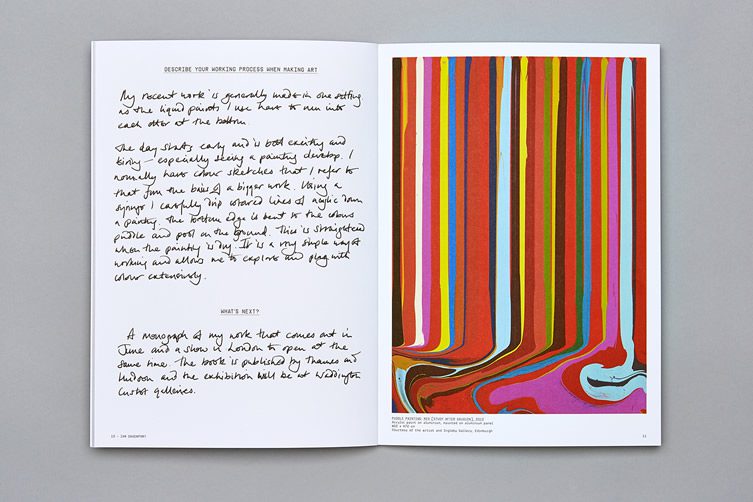 DESCRIBE YOUR WORKING PROCESS WHEN MAKING ART
My recent work is generally made in one sitting
as the liquid paints I use have to run into
each other at the bottom.
The day starts early and is both exciting and
tiring – especially seeing a painting develop. I
normally have colour sketches that I refer to
that form the basis of a bigger work. Using a
syringe I carefully drip coloured lines of acrylic down
a painting. The bottom edge is bent so the colours
puddle and pool on the ground. This is straightened
when the painting is dry. It is a very simple way of
working and allows me to explore and play with
colour extensively.
WHAT'S NEXT?
A monograph of my work that comes out in
June and a show in London to open at the
same time. The book is published by Thames and
Hudson and the exhibition will be at Waddington
Custot galleries.
IAN DAVENPORT
PUDDLE PAINTING: RED
Acrylic paint on aluminium, mounted on aluminium panel
Courtesy of the artist and Ingleby Gallery, Edinburgh